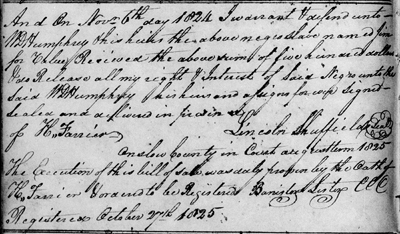 And On Nov. 6th day 1824 I warrant & defend unto
Wm Humphrey his heirs the above negro slave named from
for Value Received the above sum of five hundred dollars
I do Release all my right & Interest of said Negro unto the
said Wm Humphrey his heirs and assigns for ever signed
sealed and delivered in presence
of H. Farrior Lincoln Shuffield seal
Onslow County in Court August term 1825
The Execution of this bill of sale was duly proven by the Oath of
H. Farrior Ordered to be Registered CCC
Registered October 27th 1825